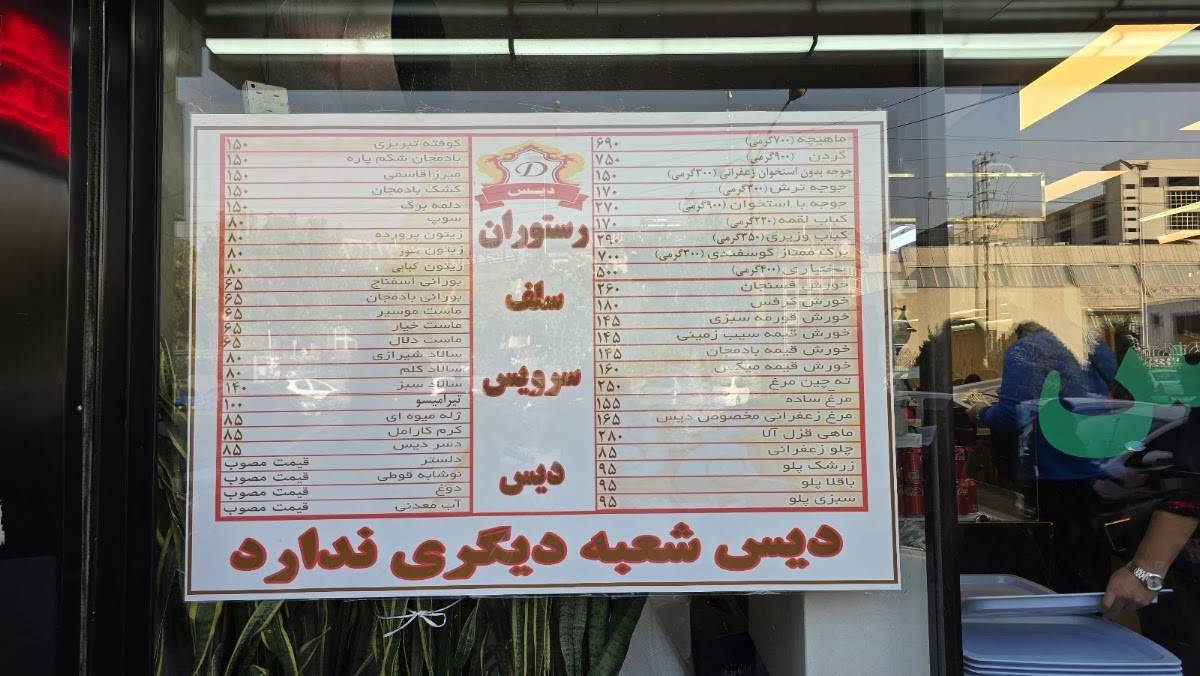 ماهیچه (۷۰۰گرمی) ۶۹۰
گردن (۹۰۰گرمی) ۷۵۰
جوجه بدون استخوان زعفرانی (۳۰۰گرمی) ۱۵۰
جوجه ترش (۳۰۰گرمی) ۱۷۰
جوجه با استخوان (۹۰۰گرمی) ۲۷۰
کباب لقمه (۲۲۰گرمی) ۱۷۰
کباب وزیری (۳۵۰گرمی) ۲۹۰
برگ ممتاز گوسفندی (۳۰۰گرمی) ۷۰۰
بختیاری (۴۰۰گرمی) ۵۰۰
خورش فسنجان ۲۶۰
خورش کرفس ۱۸۰
خورش قورمه سبزی ۱۴۵
خورش قیمه سیب زمینی ۱۴۵
خورش قیمه بادمجان ۱۴۵
خورش قیمه میکس ۱۶۰
ته چین مرغ ۲۵۰
مرغ ساده ۱۵۵
مرغ زعفرانی مخصوص دیس ۱۶۵
ماهی قزل آلا ۲۸۰
چلو زعفرانی ۸۵
زرشک پلو ۹۵
باقلا پلو ۹۵
سبزی پلو ۹۵
D
دیس
رستوران
سلف
سرویس
دیس
کوفته تبریزی ۱۵۰
بادمجان شکم پاره ۱۵۰
میرزاقاسمی ۱۵۰
کشک بادمجان ۱۵۰
دلمه برگ ۱۵۰
سوپ ۸۰
زیتون پرورده ۸۰
زیتون شور ۸۰
زیتون کبابی ۸۰
بورانی اسفناج ۶۵
بورانی بادمجان ۶۵
ماست موسیر ۶۵
ماست خیار ۶۵
ماست دلال ۶۵
سالاد شیرازی ۸۰
سالاد کلم ۸۰
سالاد سبز ۱۴۰
تیرامیسو ۱۰۰
ژله میوه ای ۸۵
کرم کارامل ۸۵
دسر دیس ۸۵
دلستر قیمت مصوب
نوشابه قوطی قیمت مصوب
دوغ قیمت مصوب
آب معدنی قیمت مصوب
دیس شعبه دیگری ندارد